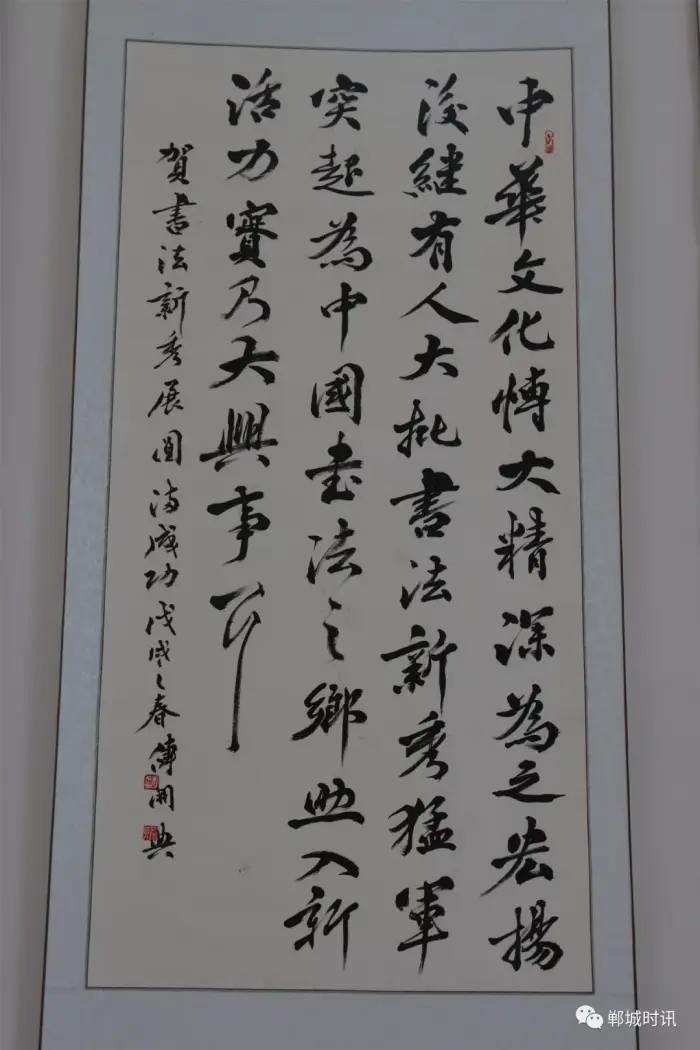 中華文化博大精深為之宏揚
後繼有人大批書法新秀猛軍
突起為中國書法之鄉助入新
活力實乃大興事也
賀書法新秀展圓滿成功戊戌之春傅開典
郸城时讯